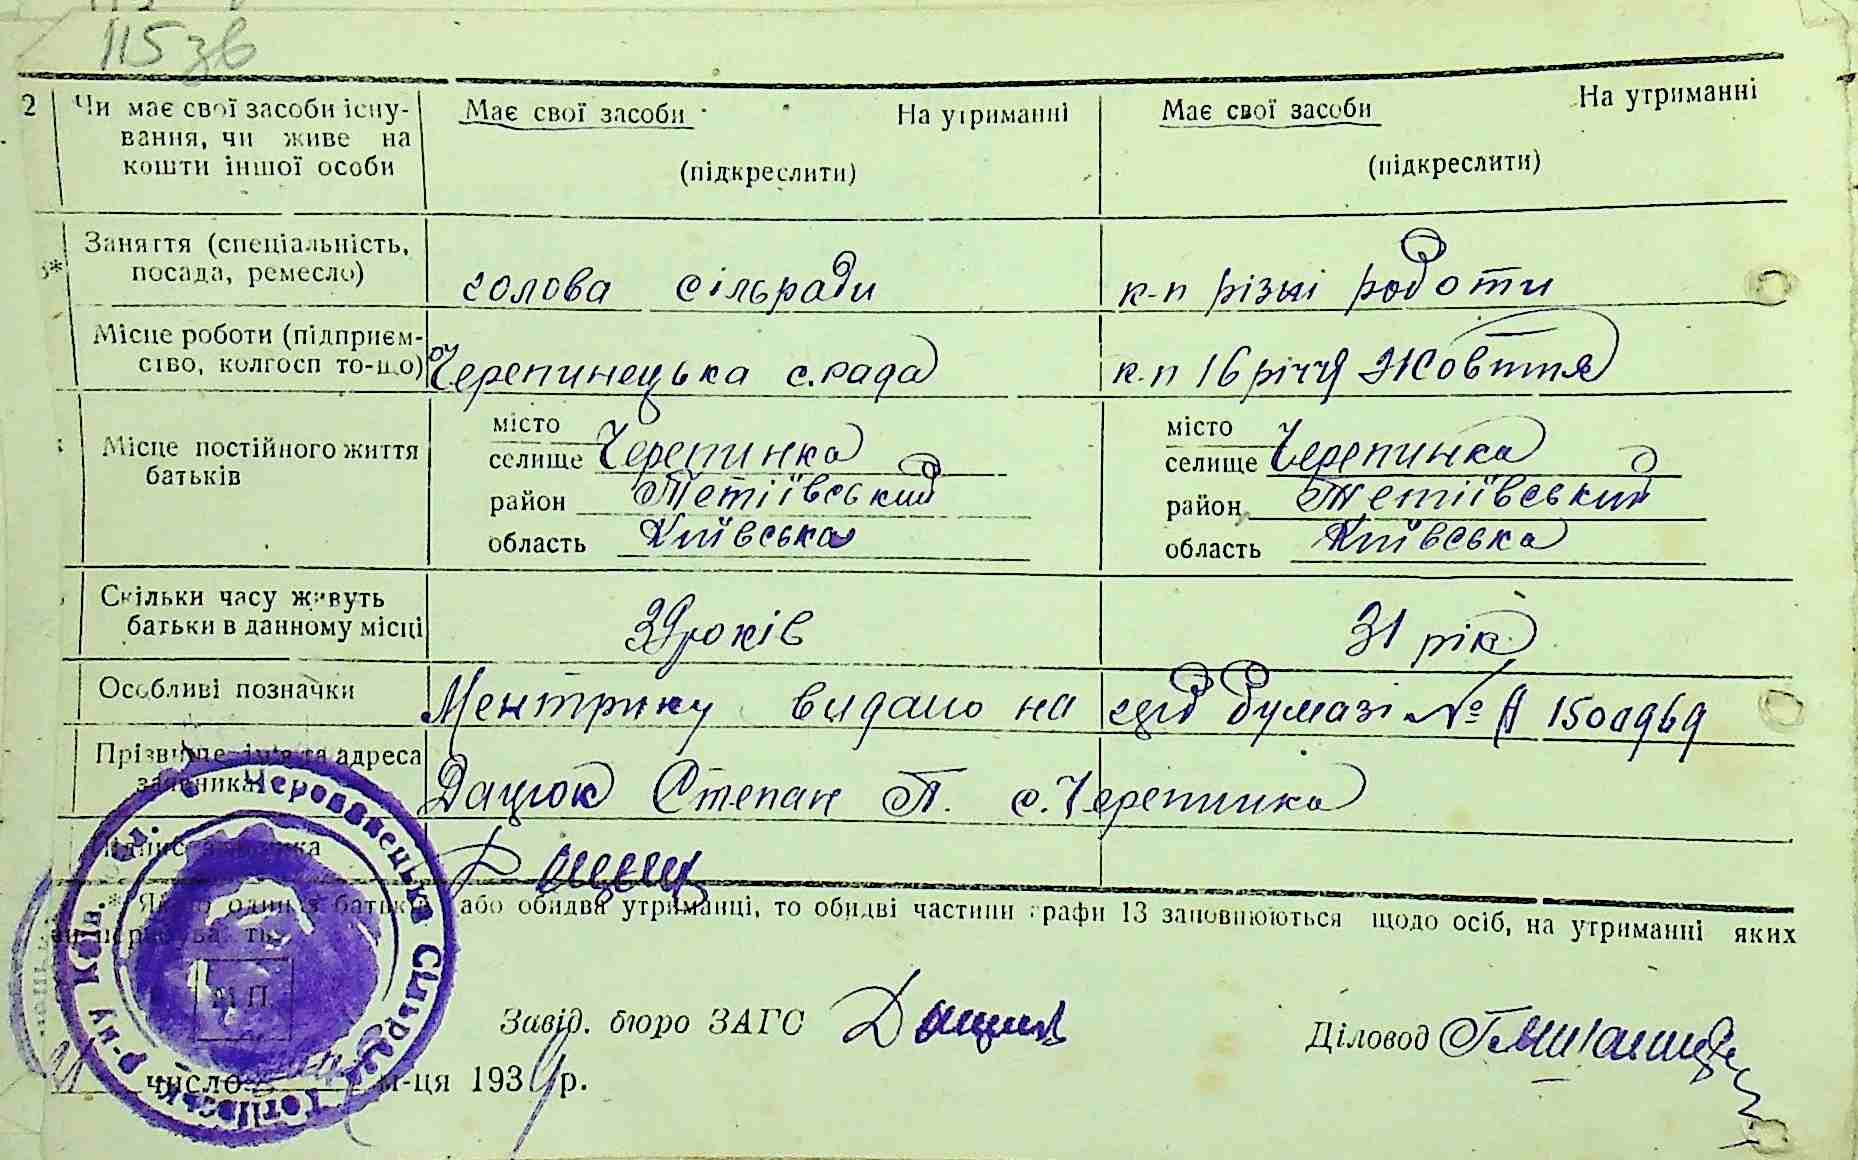 115 зв
2 Чи має свої засоби існу-
вання, чи живе на
кошти іншої особи
Має свої засоби На утриманні
(підкреслити)
Має свої засоби На утриманні
(підкреслити)
3* Заняття (спеціальність,
посада, ремесло)
голова сільради
к-п різні роботи
Місце роботи (підприєм-
ство, колгосп то-що)
Черепинецька с.рада
к.п 16 річчя Жовття
Місце постійного життя
батьків
місто
селище Черепинка
район Тетіївський
область Київська
місто
селище Черепинка
район Тетіївський
область Київська
Скільки часу живуть
батьки в данному місці
39 років
31 рік
Особливі позначки
Ментрику видано на цій бумазі № А
Прізвище ім'я та адреса
заявника
Дацюк Степан П. с. Черепинка
Підпис заявника
* Якщо один з батьків або обидва утриманці, то обидві частини графи 13 заповнюються щодо осіб, на утриманні яких
Завід. бюро ЗАГС
Діловод
М П
число м-ця 1939 р.
Сільрада Тетіївськ. р-ну Київ. обл.